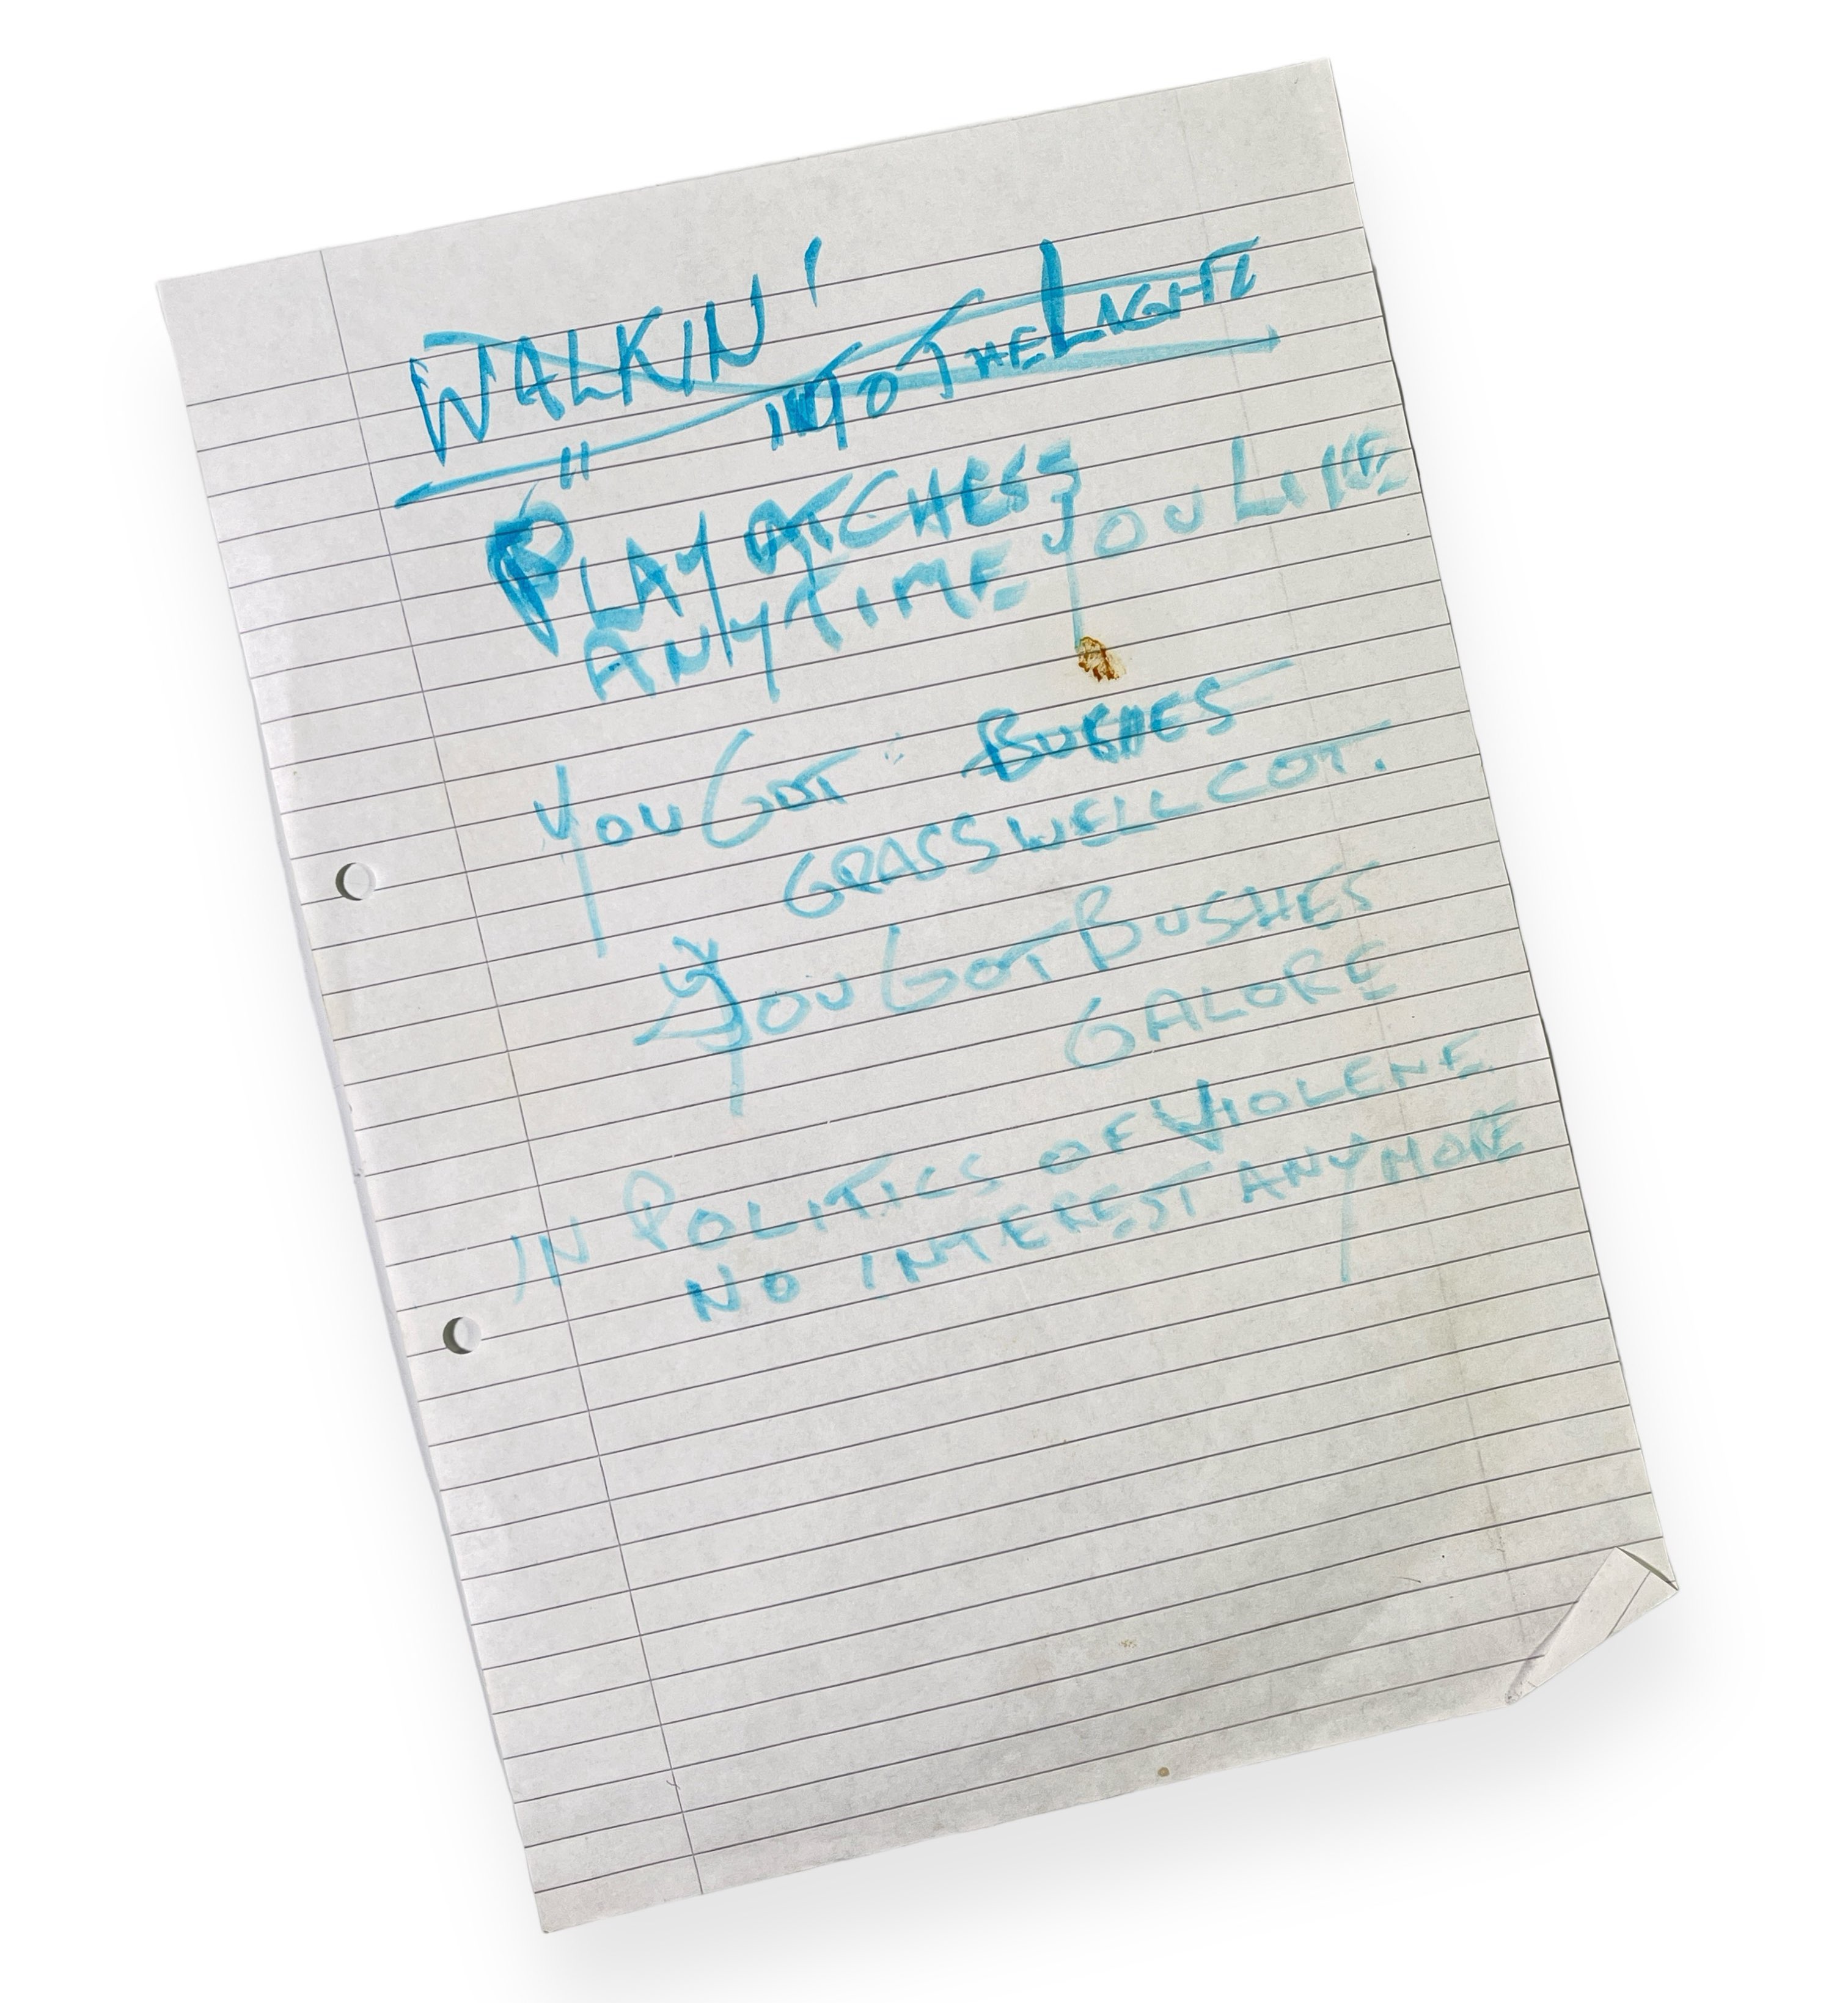 WALKIN'
INTO THE LIGHT
"PLAY AT CHESS
ANYTIME YOU LIKE
YOU GOT BUSHES
GRASS WELL COT.
YOU GOT BUSHES
GALORE
IN POLITICS OF VIOLENE
NO INTEREST ANYMORE